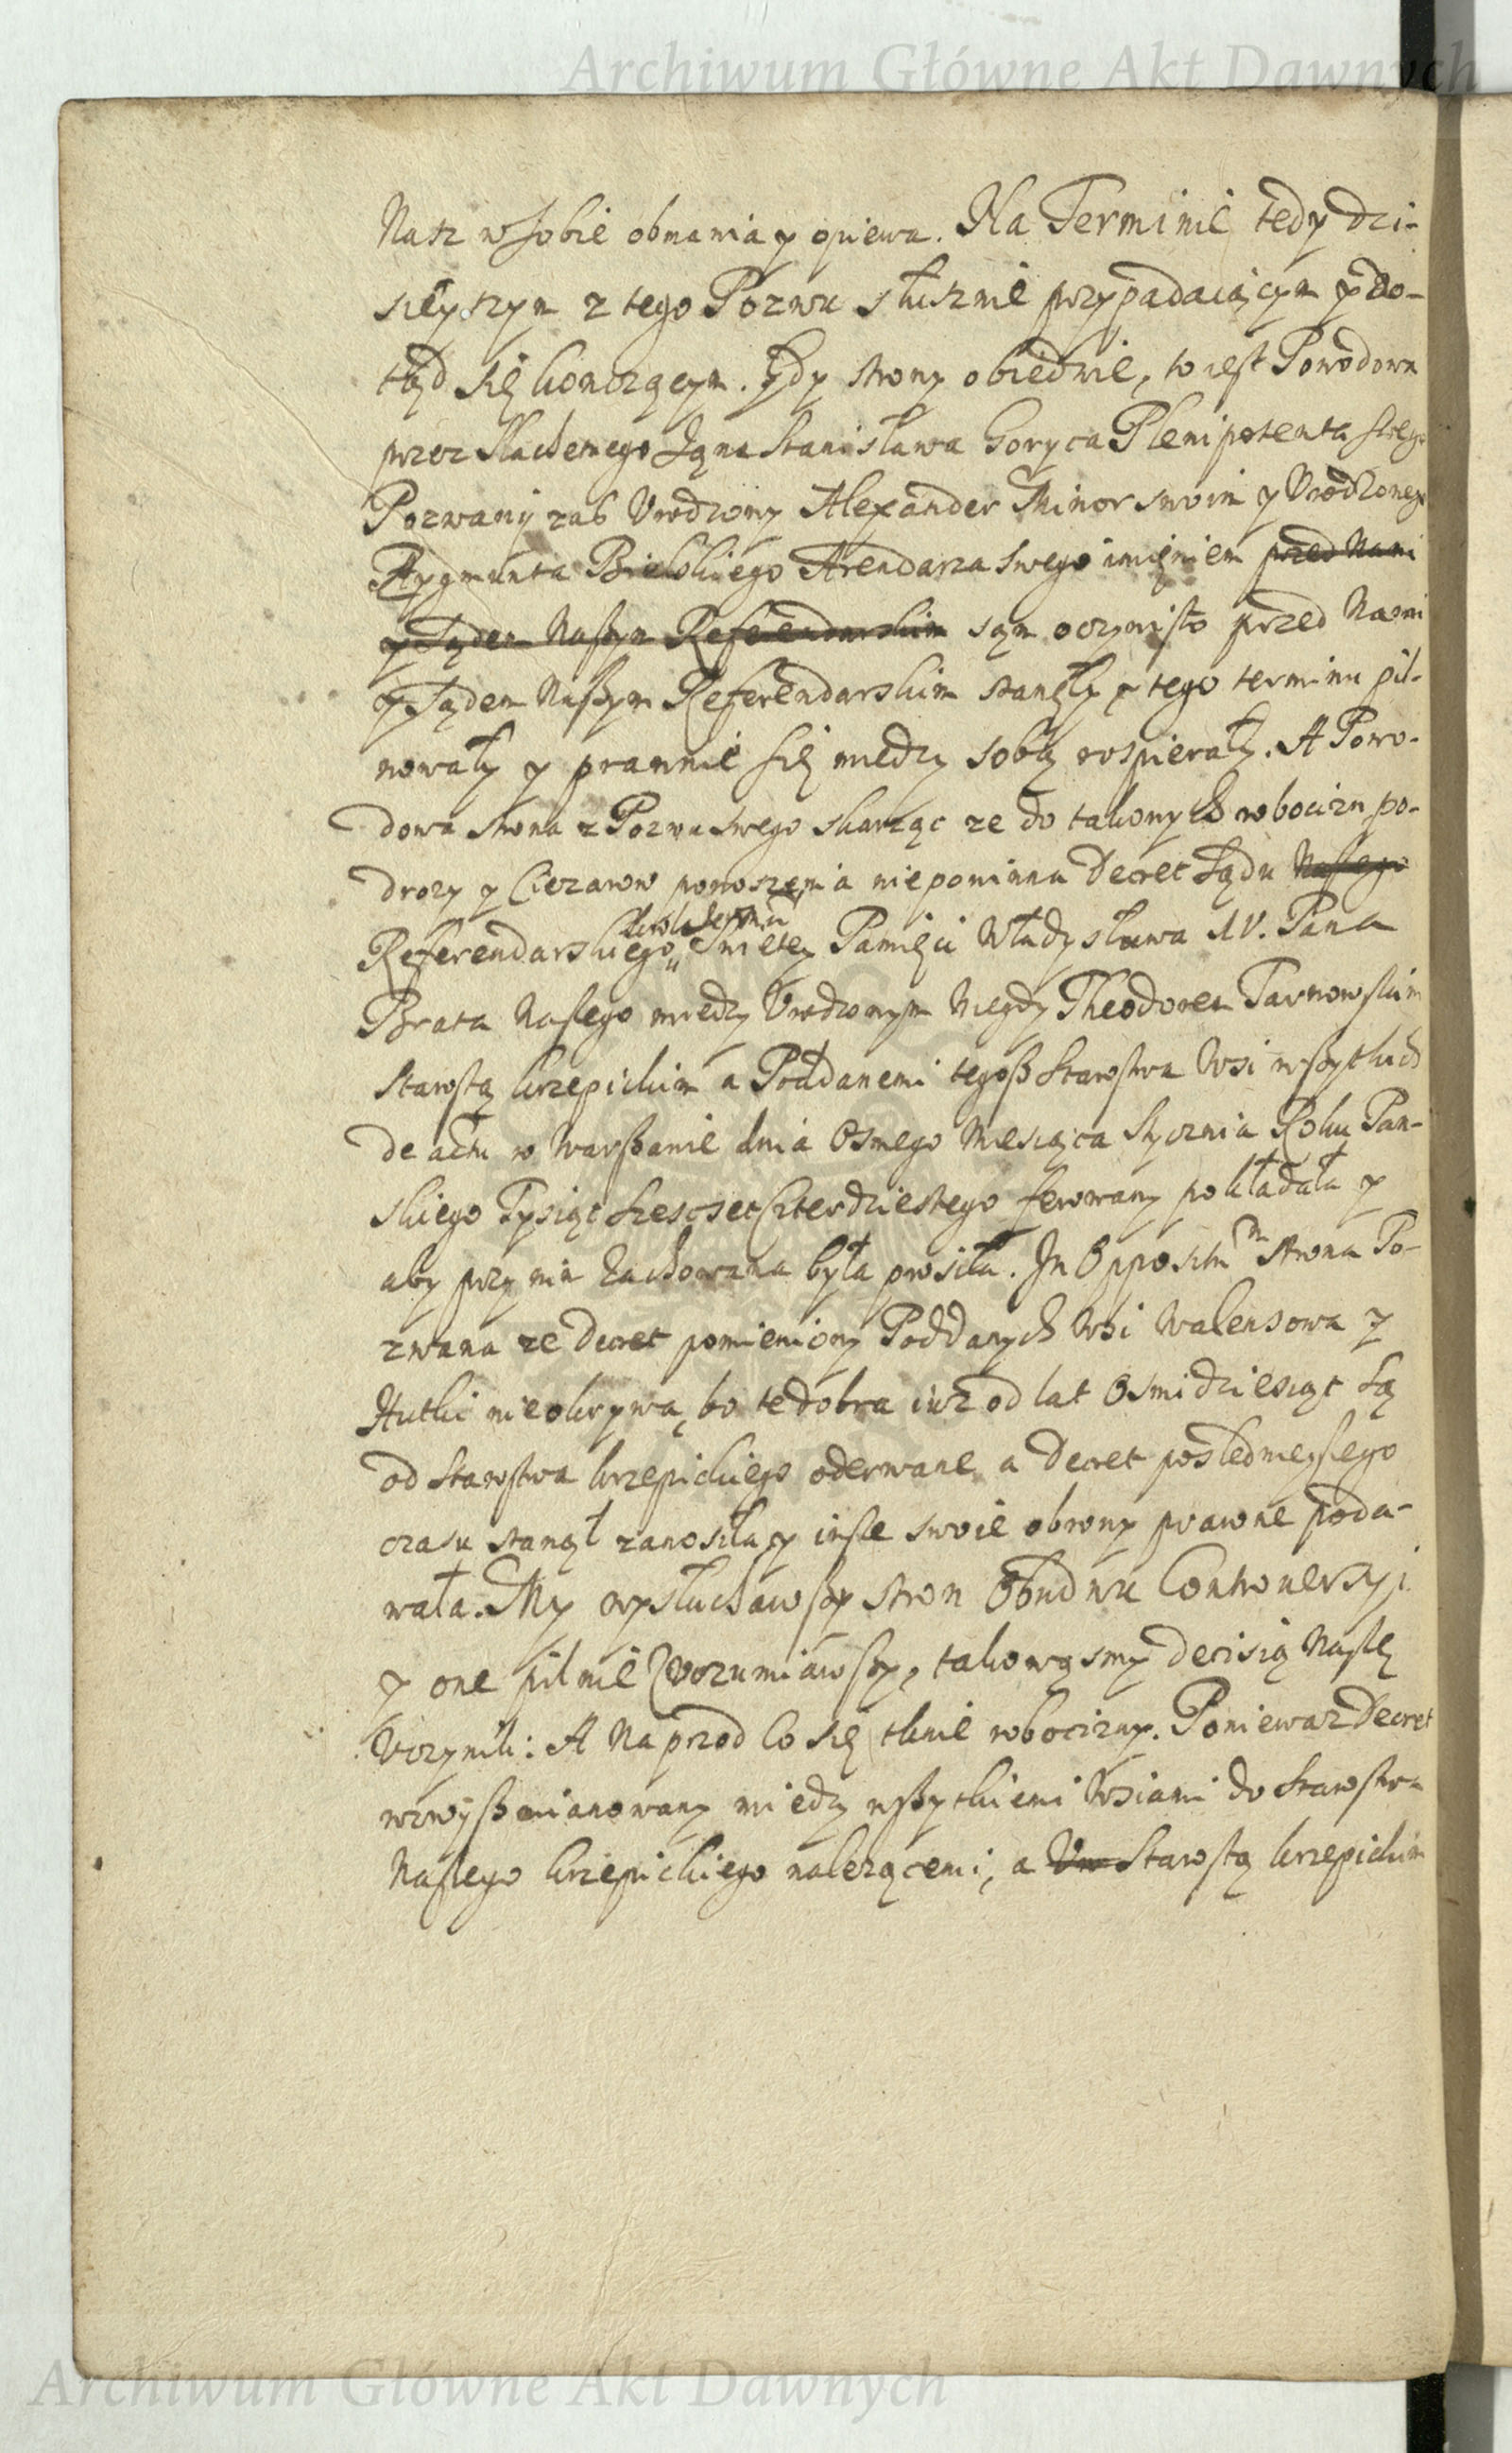 Archiwum Główne Akt Dawnych
Nasz w sobie obmawia y opiewa. Na Terminie tedy dzi-
sieyszym z tego Pozwu słusznie przypadaiącym y do-
tąd się kończącym. Gdy strony obiedwie, to iest Powodowa
przez Slachetnego Jana Stanisława Goryca Plenipotenta swego
Pozwany zaś Urodzony Alexander Minor swoim y Urodzonego
Zygmunta Bielskiego Arendarza swego imieniem przed Nami
y Sądem Naszym Referendarskim sąm oczywisto przed Nami
y Sądem Naszym Referendarskim stanęły y tego terminu pil-
nowały y prawnie się miedzy sobą rospierały. A Powo-
dowa strona z Pozwu swego skarząc ze do takowych robocizn po-
drozy y Ciezarow ponoszenia niepowinna Decret Sądu Naszego
Referendarskiego Swietey Pamięci Władysława IV. Pana
Brata Naszego miedzy Urodzonym Niegdy Theodorem Tarnowskim
Starostą krzepickim a Poddanemi tegosz Starostwa Wsi wszytkich
de actu w Warszawie dnia Osmego Miesiąca Stycznia Roku Pan-
skiego Tysiąc szescset Czterdziestego ferowany pokładała y
aby przy nim zachowana była prosiła. In Oppositum strona Po-
zwana ze Decret pomieniony Poddanych Wsi Walensowa y
Hutki nieokrywa, bo te dobra iuz od lat Osmidziesiąt Są
od Starostwa krzepickiego oderwane, a Decret poslednieyszego
czasu stanął zanosiła y insze swoie obrony prawne poda-
wała. My wysłuchawszy stron Obudwu Controversyi
y one pilnie Wyrozumiawszy, takowąsmy decisią Naszę
Uczynili: A Naprzod Co się tknie robocizny. Poniewaz Decret
wzwysz mianowany miedzy wszytkiemi Wsiami do Starostwa
Naszego krzepickiego nalezącemi, a Starostą krzepickim
Archiwum Główne Akt Dawnych